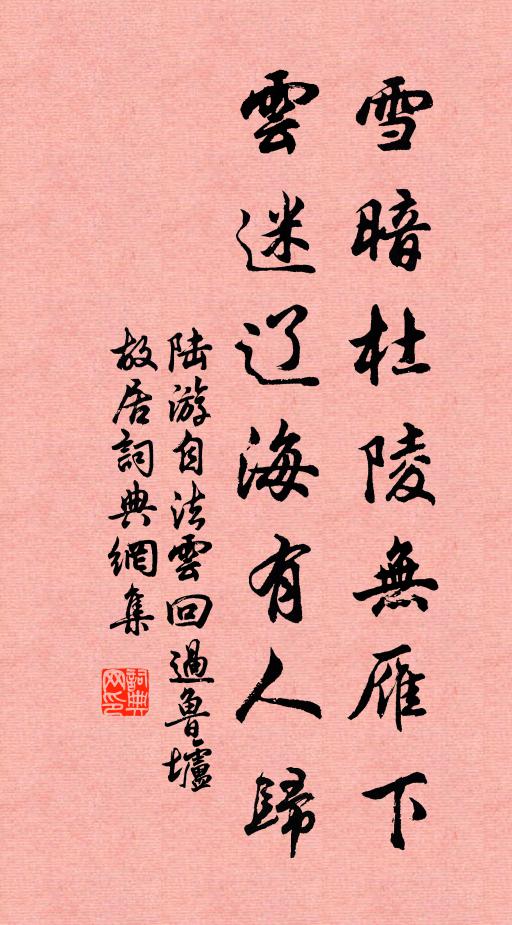 雪暗杜陵無雁下
雲迷辽海有人歸
陸游自法雲回過魯墟
故居詞典網集
詞典
网印